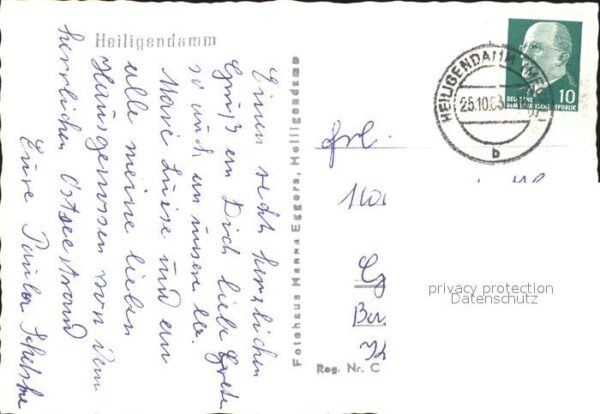 Heiligendamm
Einen recht herzlichen
Gruß an Dich liebe Grete
so und an unsere lb.
Marie Luise und an
alle meine lieben
Hausgenossen von dem
herrlichen Ostseestrand
Eure Paula
Fotohaus Hanna Eggers, Heiligendamm
HEILIGENDAMM
25.10.63
b
DEUTSCHE
DEMOKRATISCHE REPUBLIK
10
Frl.
privacy protection
Datenschutz
Reg. Nr. C